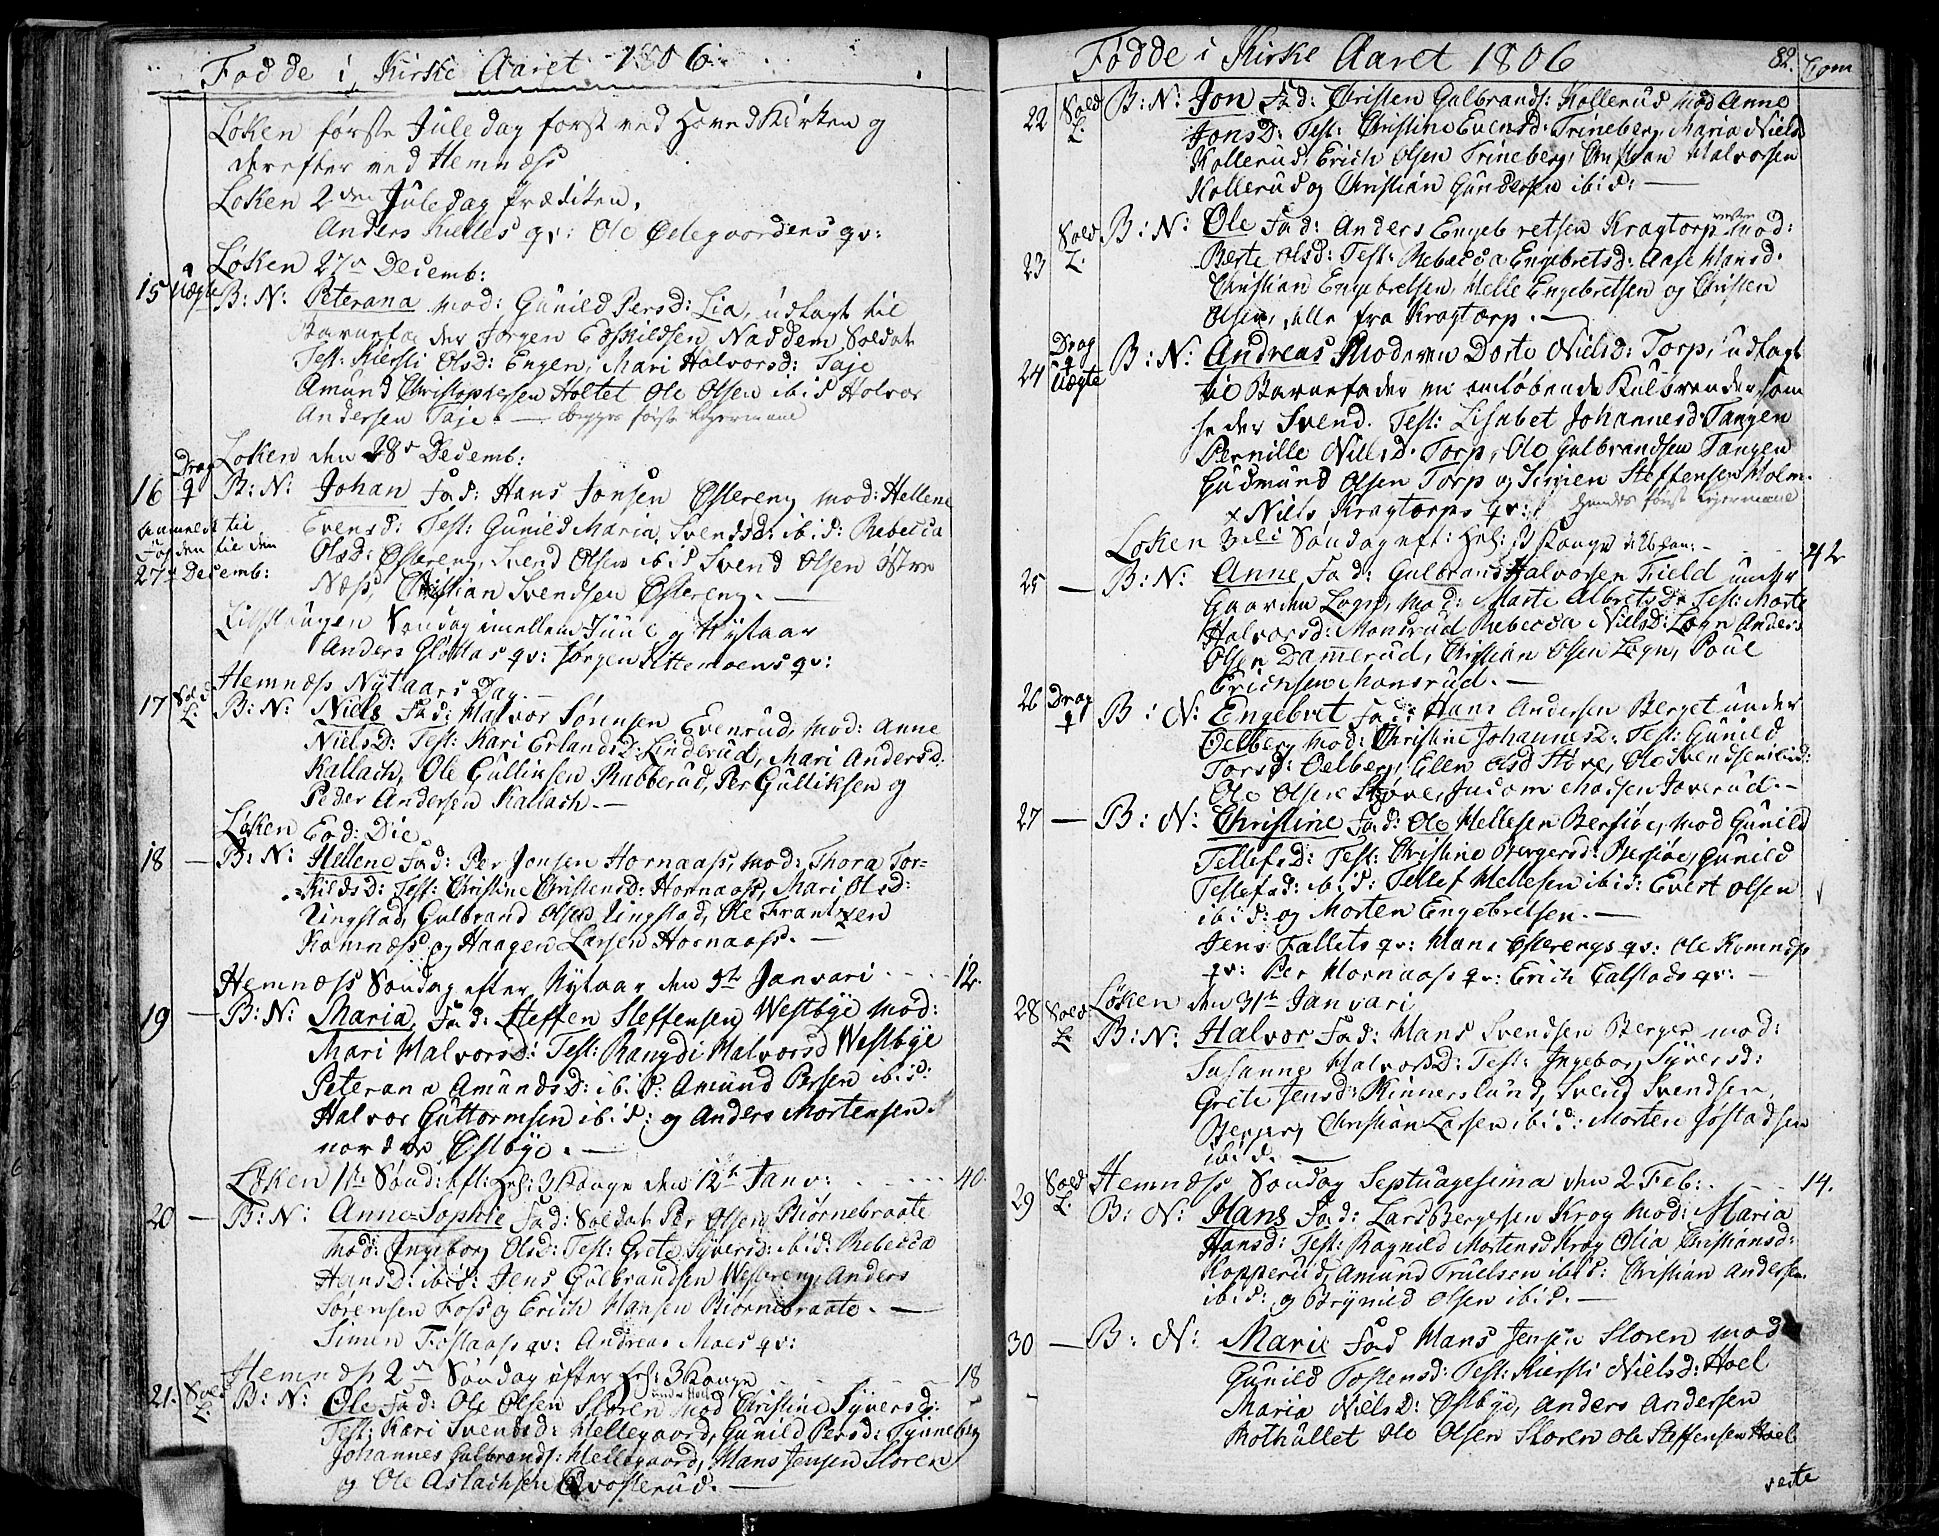 Fødde i Kirke Aaret 1806.
Løken første Juledag først ved Hoved Kirken og
derefter ved Hemness
Løken 2den Juledag Prædiken.
Anders Killes qv: Ole Ødegaardens qv:
Løken 27de Decemb:
15 Uægte B: N: Peterana Mod: Gunild Persd: Lia, udlagt til
Barnefader Jørgen Eskildsen Naddem Soldat
Test: Kiersti Olsd: Engen, Mari Halvorsd: Taje
Amund Christophersen Holtet Ole Olsen ibid Halvor
Andersen Taje. — begges første Leyermaal
Løken den 28de Decemb:
16 Drag B: N: Johan Fad: Hans Jonsen Østereng mod: Hellene
Evensd: Test: Gunild Maria Svendsd: ibid: Rebecca
Olsd: Østereng, Svend Olsen ibid Svend Olsen østre
Næss, Christian Svendsen Østereng. —
anmeldt til
Føden til den
27de Decemb:
Søndag imellem Juul og Nytaar
Anders Glottas qv: Jørgen Littemoens qv:
Hemness Nytaars Dag. —
17 Sold L: B: N: Niels Fad: Halvor Sørensen Evenrud, mod: Anne
Nielsd: Test: Kari Erlandsd: Linderud, Mari Andersd:
Kallach, Ole Gulliksen Rabberud, Per Gulliksen og
Peder Andersen Kallach. —
Løken Eod: Die
18 — B: N: Hellene Fad: Per Jonsen Hornaass, mod: Thora Tor=
kildsd: Test: Christine Christensd: Hornaass, Mari Olsd:
Ringstad, Gulbrand Olsen Ringstad, Ole Frantzen
Komness og Haagen Larsen Hornaass. —
Hemness Søndag efter Nytaar den 5te Januari - - - - 12.
19 — B: N: Maria, Fad: Steffen Steffensen Westbye mod:
Mari Halvorsd: Test: Rangdi Halvorsd Westbye
Peterana Amundsd: ibid: Amund Persen ibid:
Halvor Guttormsen ibid: og Anders Mortensen
nordre Østbye. —
Løken 1ste Sønd: eft: Hel: 3 Konge den 12te Janv: - - - - 40.
20 — B: N: Anne Sophie Fad: Soldat Per Olsen Biørnebraate
Mod: Ingeborg Olsd: Test: Grete Syversd: ibid: Rebecca
Hansd: ibid: Jens Gulbrandsen Westereng, Anders
Sørensen Foss og Erich Hansen Biørnebraate. —
Simen Fostaass qv: Andreas Moes qv:
Hemness 2den Søndag efter Hel: 3 Konge - - - - 18
21. Sold L: B: N: Ole Fad: Ole Olsen Sloren under Hoel mod Christine Syversd:
Test: Kari Svendsd: Hellegaard, Gunild Persd: Tynneberg
Johannes Gulbrands: Hellegaard, Hans Jensen Sloren
og Ole Aslachsen Qvosterud. —
Fødde i Kirke Aaret 1806
82. Com
22 Sold L: B: N: Jon Fad: Christen Gulbrands: Kollerud, mod Anne
Jonsd: Test: Christine Evensd: Trineberg, Maria Nielsd
Kollerud, Erich Olsen Trineberg, Christian Halvorsen
Kollerud og Christian Gundersen ibid: —
23 Sold L: B: N: Ole Fad: Anders Engebretsen Kragtorp vestre mod:
Berte Olsd: Test: Rebecca Engebretsd: Aase Hansd:
Christian Engebretsen, Helle Engebretsen og Christen
Olsen, alle fra Kragtorp. —
24 Drag Uægte B: N: Andreas Moderen Dorte Nielsd: Torp, udlagt
til Barnefader en omløbende Kulbrender som
heder Svend. Test: Lisabet Johannesd: Tangen
Pernille Nielsd. Torp, Ole Gulbrandsen Tangen
Gudmund Olsen Torp og Jørgen Steffensen Holm.
x Niels Kragtorps qv: Hendes første Leyermaal
Løken 3die Søndag eft: Hel: 3 Konge d: 26 Jan: - - - 42
25 — B: N: Anne, Fad: Gulbrand Halvorsen Field under
Gaarden Logn, Mod: Marte Albretsd: Test: Morte
Halvorsd: Monsrud Rebecca Nielsd: Logn Anders
Olsen Dammerud, Christian Olsen Logn, Poul
Erichsen Monsrud. —
26 Drag B: N: Engebret Fad: Hans Andersen Berget under
Oelberg Mod: Christine Johannesd: Test: Gunild
Torsd: Oelberg, Ellen Olsd Støve, Ole Svendsen ibid:
Ole Olsen Støve, Gudom Madsen Joverud. —
27 — B: N: Christine Fad: Ole Hellesen Bersiøe, mod Gunild
Tellefsd: Test: Christine Bergersd: Bersiøe, Gunild
Tellefsd: ibid: Tellef Hellesen ibid: Evert Olsen
ibid: og Morten Engebretsen. —
Jens Fallets qv: Hans Østerengs qv: Ole Komness
qv: Per Hornaass qv: Erich Ealstads qv: —
Løken den 31te Januari
28 Sold L: B: N: Halvor Fad: Hans Svendsen Berger mod:
Susanne Halvorsd: Test: Ingeborg Syversd:
Grete Jensd: Kinnerslund, Svend Svendsen
Berger, Christian Larsen ibid: Morten Jostadsen
ibid. —
Hemness Søndag Septuagesima den 2 Feb: - - - 14.
29 Sold L: B: N: Hans Fad: Lars Bergersen Krog Mod: Maria
Hansd: Test: Ragnild Mortensd Krog Olia Christiansd:
Kopperud, Amund Truelsen ibid: Christian Andersen
ibid: og Brynild Olsen ibid. —
30 — B: N: Marie Fad Hans Jensen Sloren mod
Gunild Tostensd: Test: Kiersti Nielsd: Hoel
Maria Nielsd: Østbye, Anders Andersen
Rothullet Ole Olsen Sloren Ole Steffensen Hoel
verte